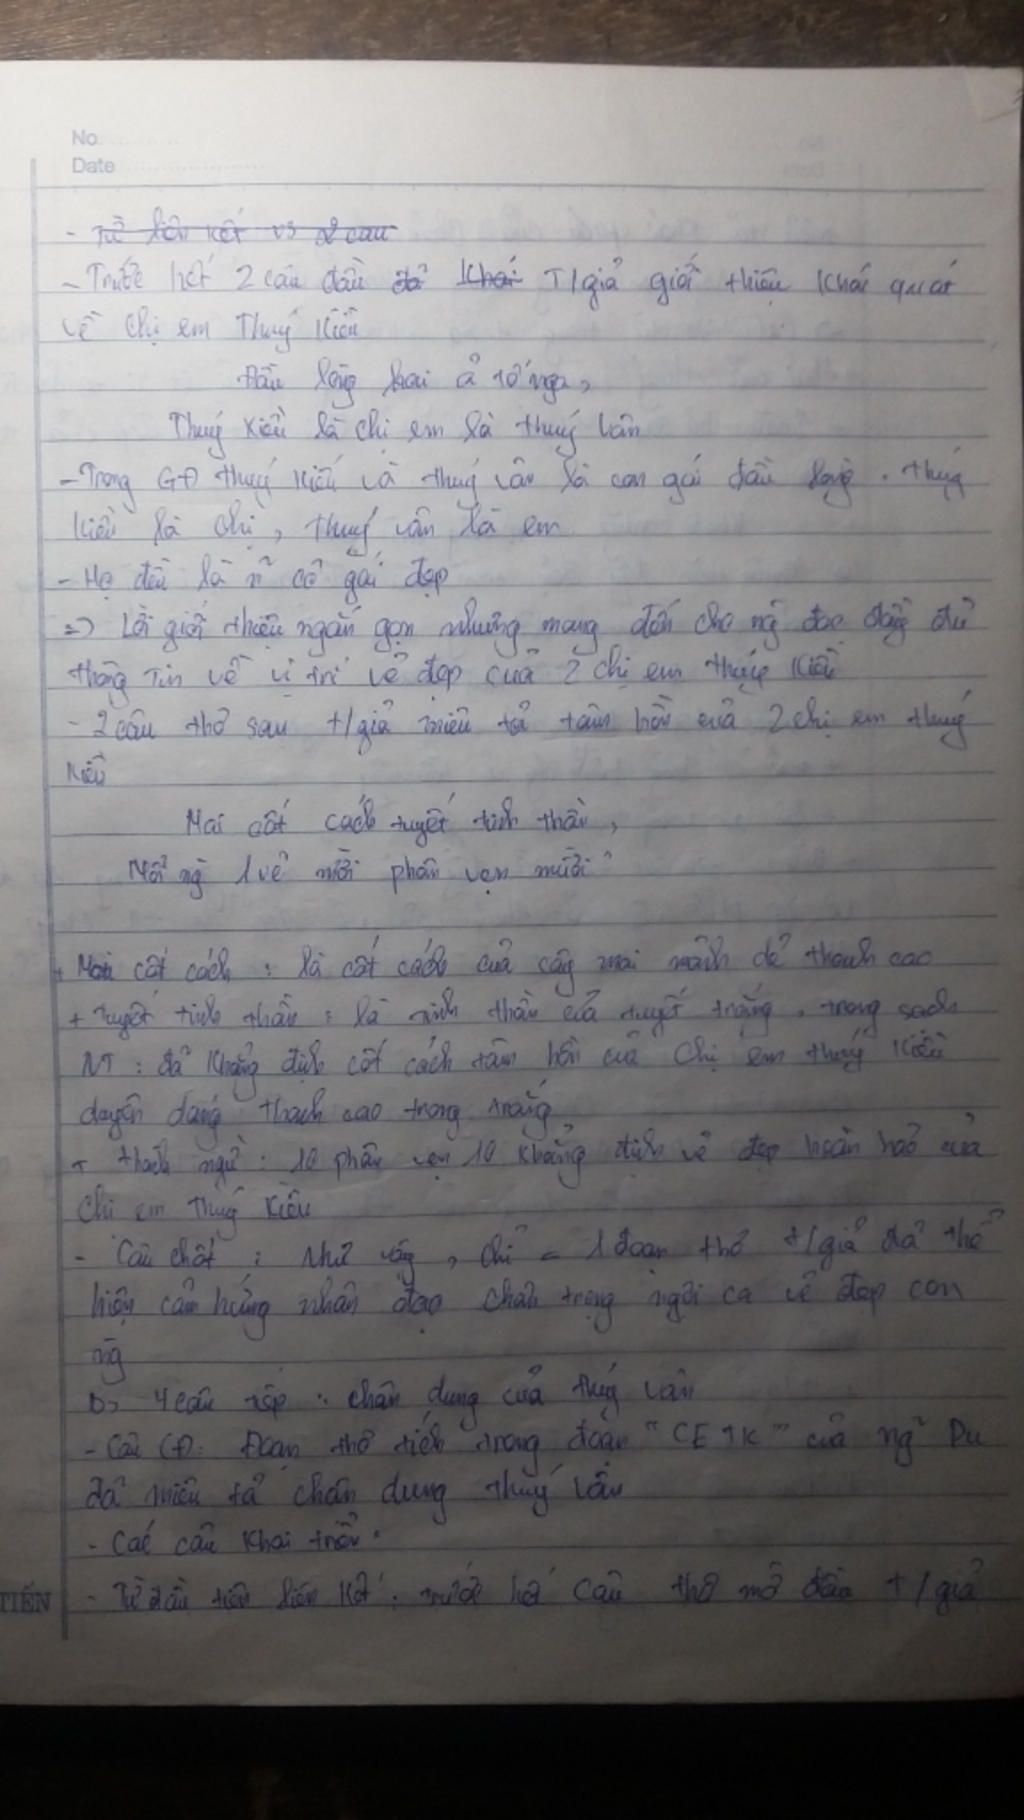 No.
Date
- Từ liên kết vs 2 câu
- Trước hết 2 câu đầu đã khái T/giả giới thiệu khái quát
về chị em Thuý Kiều
Đầu lòng hai ả tố nga,
Thuý Kiều là chị em là thuý Vân
- Trong GĐ thuý Kiều và thuý vân là con gái đầu lòng. thuý
Kiều là chị, thuý vân là em
- Họ đều là n~ cô gái đẹp
=> Lời giới thiệu ngắn gọn nhưng mang đến cho ng đọc đầy đủ
thông tin về vị trí vẻ đẹp của 2 chị em thuý Kiều
- 2 câu thơ sau t/giả miêu tả tâm hồn của 2 chị em thuý
Kiều
Mai cốt cách tuyết tinh thần,
Mỗi ng 1 vẻ mười phân vẹn mười"
+ Mai cốt cách : là cốt cách của cây mai mảnh dẻ thanh cao
+ Tuyết tinh thần : là tinh thần của tuyết trắng, trong sạch
NT : đã khẳng định cốt cách tâm hồn của chị em thuý Kiều
duyên dáng thanh cao trong trắng
+ thành ngữ : 10 phân vẹn 10 khẳng định vẻ đẹp hoàn hảo của
chị em Thuý Kiều
- Câu chốt : Như vậy, chỉ = 1 đoạn thơ t/giả đã thể
hiện cảm hứng nhân đạo trân trọng ngợi ca vẻ đẹp con
ng
b, 4 câu tiếp : chân dung của thuý vân
- Câu CĐ: Đoạn thơ trích trong đoạn "CETK" của ng~ Du
đã miêu tả chân dung thuý Vân
- Các câu khai triển :
- Từ đầu tiên liên kết : trước hết câu thơ mở đầu t/giả
TIẾN